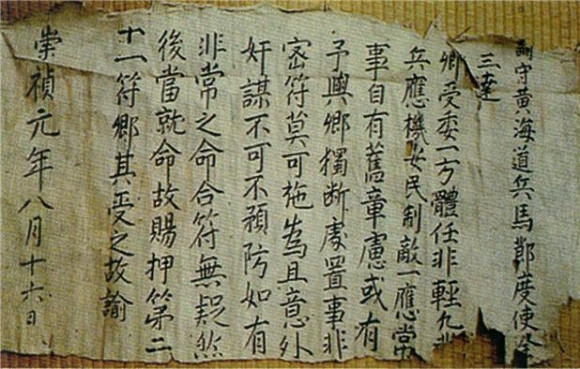 守黃海道兵馬節度使
三達
卿受委一方體任非輕凡
兵應機安民制敵一應常
事自有舊章慮或有
予與卿獨斷處置事非
密符莫可施爲且意外
奸謀不可不預防如有
非常之命合符無疑然
後當就命故賜押第二
十一符卿其受之故諭
崇禎元年八月十六日